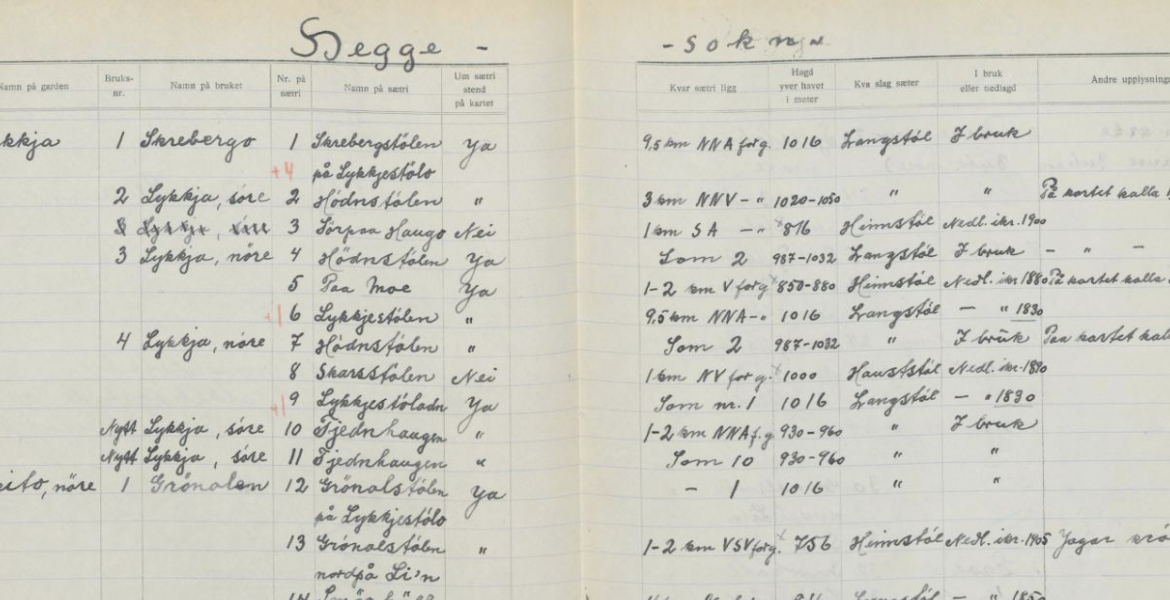 Hegge - - sokn
Namn på garden Bruks-nr. Namn på bruket Nr. på sætri Namn på sætri Um sætri stend på kartet Kvar sætri ligg Høgd yver havet i meter Kva slag sæter I bruk eller nedlagd Andre upplysning
kkja 1 Skrebergo 1 Skrebergstölen Ya 9,5 km NNA for g. 1016 Langstöl I bruk
+4 på Lykkjestölo
2 Lykkja, söre 2 Hödnstölen " 3 km NNV - " 1020-1050 " " På kartet kalla
3 Sörpaa Haugo Nei 1 km SA - " x 876 Heimstöl Nedl. ikr. 1900
3 Lykkja, nöre 4 Hödnstölen Ya Som 2 987-1032 Langstöl I bruk - " -
5 Paa Moe Ya 1-2 km V for g. x 850-880 Heimstöl Nedl. ikr. 1880 På kartet kalla
+1 6 Lykkjestölen " 9,5 km NNA - " 1016 Langstöl - " 1830
4 Lykkja, nöre 7 Hödnstölen " Som 2 987-1032 " I bruk Paa kartet kall
8 Skarsstölen Nei 1 km NV for g. x 1000 Hauststöl Nedl. ikr.
+1 9 Lykkjestöladn Ya Som nr. 1 1016 Langstöl - " 1830
Nytt Lykkja, söre 10 Tjednhaugen " 1-2 km NNA f. g 930-960 " I bruk
Nytt Lykkja, söre 11 Tjednhaugen " Som 10 930-960 " "
eito, nöre 1 Grönolen 12 Grönolstölen Ya - 1 1016 " "
på Lykkjestölo
13 Grönolstölen " 1-2 km VSV for g. x 756 Heimstöl Nedl. ikr. 1905
nordpå Li'n